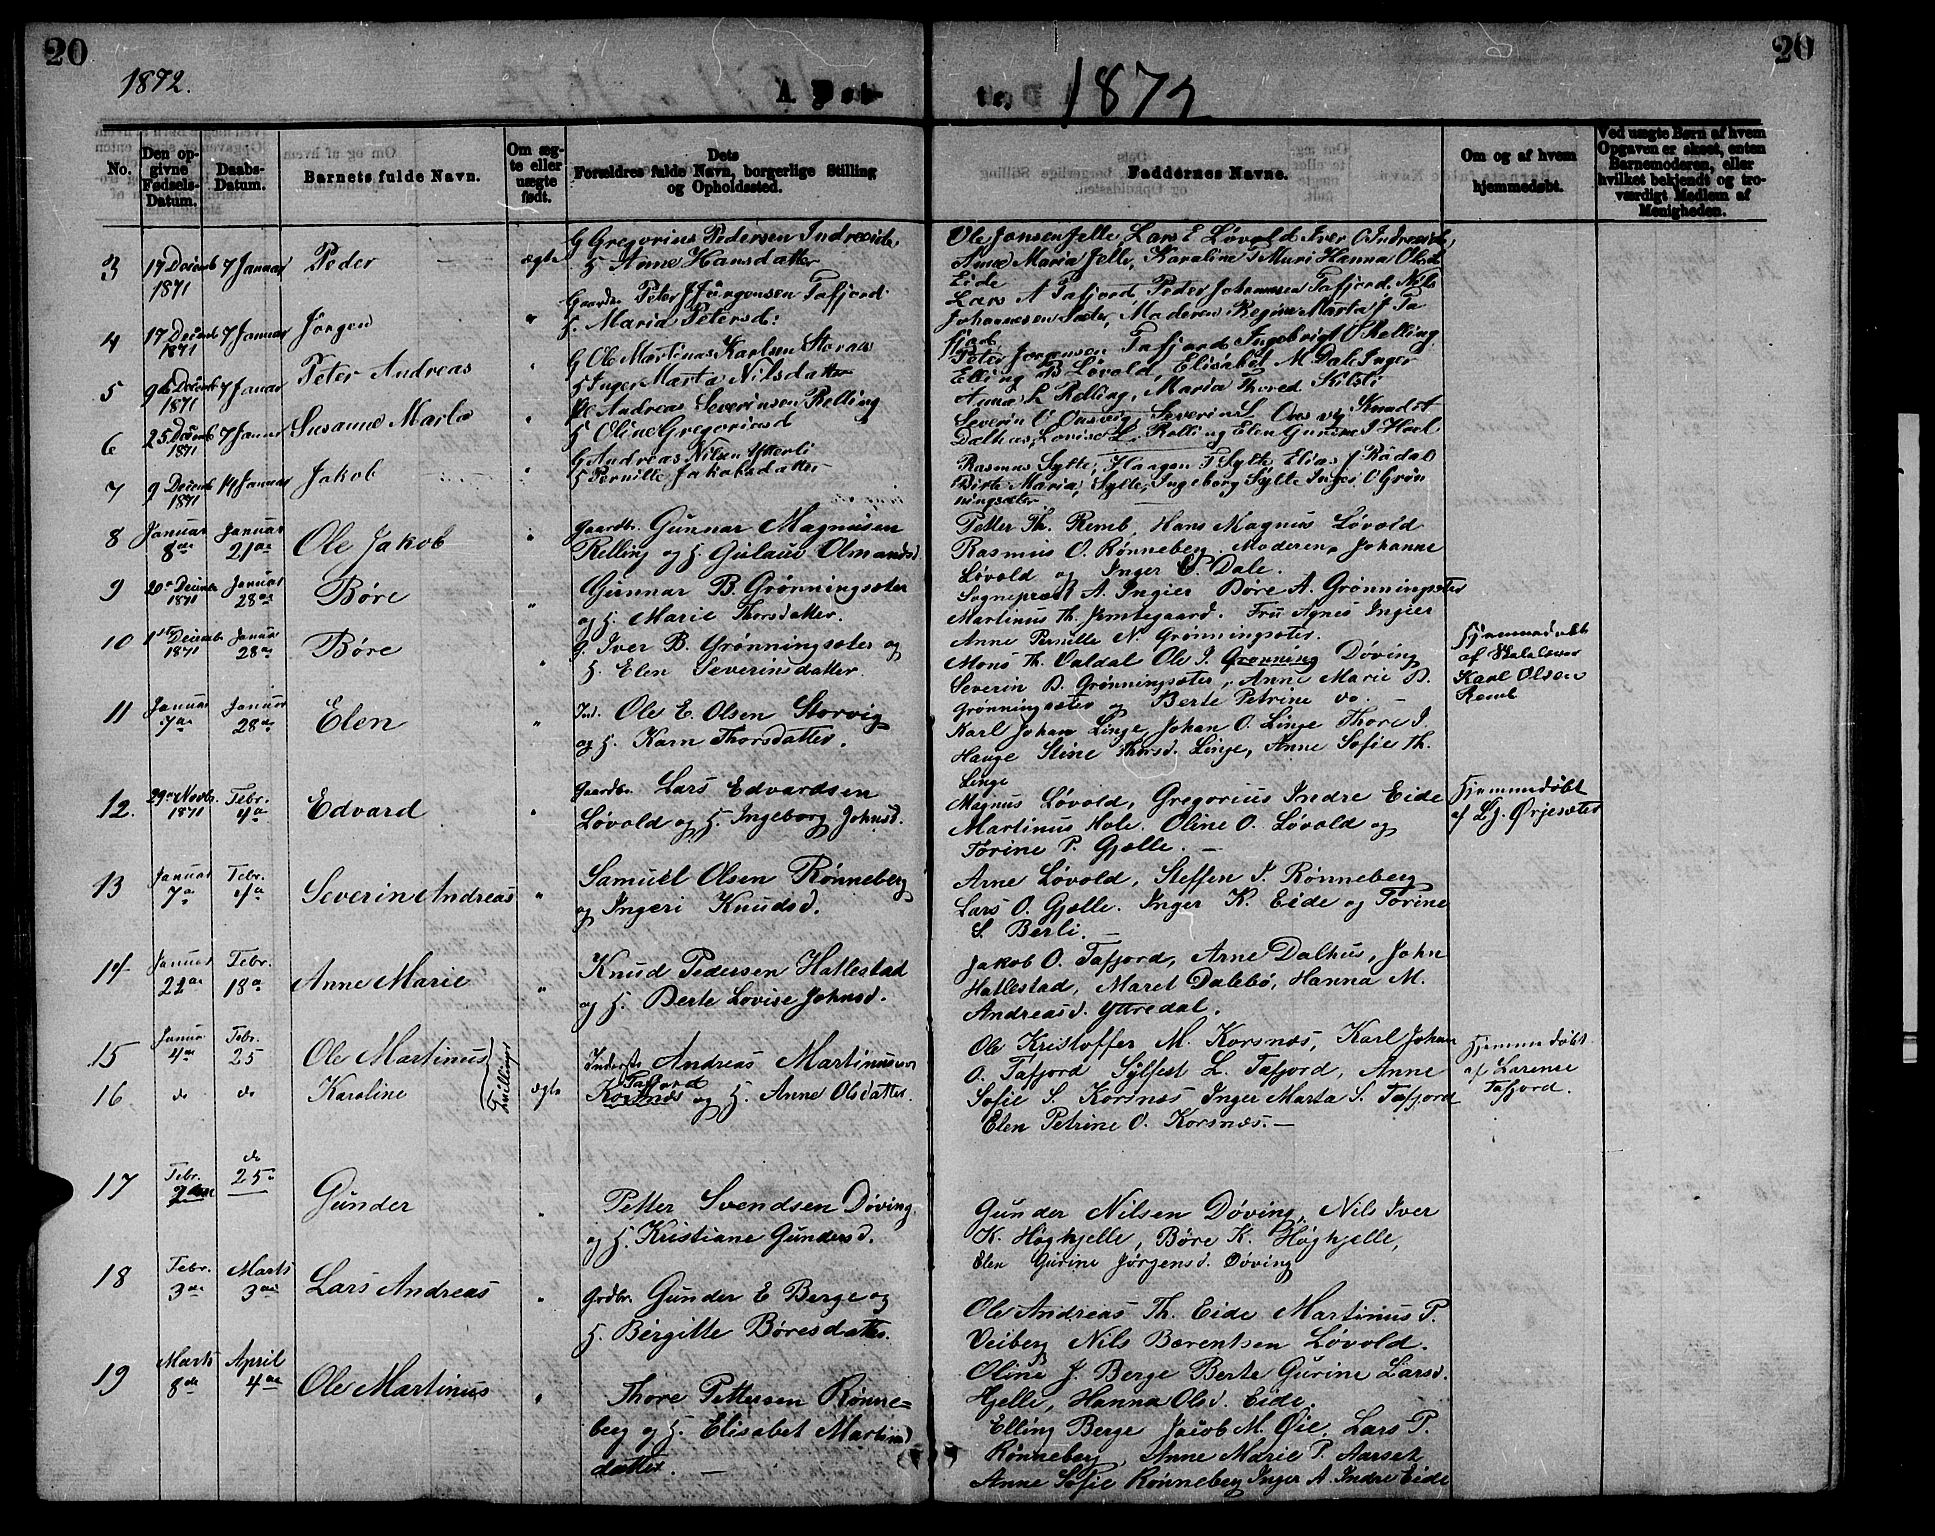 20
20
1872.
A. Døb-
te.
1872
No.
Den op-
givne
Fødsels-
Datum.
Daabs-
Datum.
Barnets fulde Navn.
Om æg-
te eller
uægte
født.
Dets
Forældres fulde Navn, borgerlige Stilling
og Opholdssted.
Faddernes Navne.
Om og af hvem
hjemmedøbt.
Ved uægte Børn af hvem
Opgaven er skeet, enten
Barnemoderen, eller
hvilket bekjendt og tro-
værdigt Medlem af
Menigheden.
3
17 Decemb
1871
7 Januar
Peder
ægte
G Gregorius Pedersen Indreeide,
H. Anne Hansdatter
Ole Jonsen Jelle Lars E Løvold Iver O Indreeide,
Anne Maria Jelle, Karoline T Muri Hanna Olsd
Eide
4
17 Decemb
1871
7 Januar
Jørgen
"
Gaardbr Peter J Jørgensen Tafjord
H. Maria Petersd:
Lars A Tafjord Peder Johannesen Tafjord, Nils
Johannesen Sæter, Moderen Regine Marta J Ta
fjord
5
7 Januar
1871
Peter Andreas
"
G Ole Martinus Karlsen Storaas
H Inger Marta Nilsdatter
Peter Jørgensen Tafjord Ingebrigt O Relling
Elling B Løvold, Elisabet M Dale Inger
Anne L Relling, Maria Thored Kilsti
6
25 Decemb
1871
7 Januar
Susanne Marta
"
Andreas Severinsen Relling
H Oline Gregoriusd
Severin Severin L Knud A
Dalhus, Lovise L. Relling Elen Gurine J Hoel
7
9 Decemb
1871
14 Januar
Jakob
"
G Andreas Nilsen Ytterli
H Pernille Jakobsdatter
Rasmus Sylte, Haagen T Sylte Elias J Rødal
Birte Maria Sylte, Ingeborg Sylte Inger O Grøn
ningsæter
8
Januar
8de
Januar
21de
Ole Jakob
"
Gaardbr. Gunnar Magnusen
Relling og H. Gulaue Olmandsd.
Petter Th. Remb, Hans Magnus Løvold
Rasmus O. Rønneberg. Moderen, Johanne
Løvold og Inger C. Dale.
9
20de Decembr
1871
Januar
28de
Børe
"
Gunnar B. Grønningsæter
og H. Marie Thorsdatter.
Sognepræst A. Ingier Børe A. Grønningsæter
Martinus Th. Jemtegaard. Fru Agnes Ingier
Anne Pernille N. Grønningsæter.
10
1ste Decembr
1871
Januar
28de
Børe
"
G. Iver B. Grønningsæter og
H. Elen Severinsdatter.
Mons Th. Valdal Ole I. Grønning Døving
Severin B. Grønningsæter, Anne Marie B.
Grønningsæter og Berte Petrine do. —
Hjemmedøbt
af Skolelærer
Karl Olsen
Remb
11
Januar
7de
Januar
28de
Elen
"
Ind. Ole E. Olsen Storvig
og H. Karn Thorsdatter.
Karl Johan Linge Johan O. Linge Thore I.
Hauge Stine Thorsd. Linge, Anne Sofie Th.
Linge
12.
29de Novbr.
1871
Febr.
4de
Edvard
"
Gaardbr. Lars Edvardsen
Løvold og H. Ingeborg Johnsd.
Magnus Løvold, Gregorius Indre Eide
Martinus Hole. Oline O. Løvold og
Torine P. Gjelle. —
Hjemmedøbt
af L. J. Ørjesæter
13
Januar
7de
Febr.
4de
Severin Andreas
"
Samuel Olsen Rønneberg
og Ingeri Knudsd.
Arne Løvold, Steffen I. Rønneberg
Lars O. Gjelle. Inger K. Eide og Torine
S. Berli. —
14
Januar
22de
Febr.
18de
Anne Marie
"
Knud Pedersen Hatlestad
og H. Berte Lovise Johnsd.
Jakob O. Tafjord, Arne Dalhus, John
Hatlestad, Maret Dalebø, Hanna M.
Andreasd. Yttredal.
15
Januar
4de
Febr.
25
Ole Martinus
Tvillinger
Inderste Andreas Martinussen
Tafjord
Ole Kristoffer M. Korsnæs, Karl Johan
O. Tafjord Sylfest L. Tafjord, Anne
Hjemmedøbt
af Larense
Tafjord.
16
do
do
Karoline
ægte
Korsnæs og H. Anne Olsdatter.
Sofie S. Korsnæs Inger Marta S. Tafjord
Elen Petrine O. Korsnæs. —
17
Febr.
2den
do
25
Gunder
"
Petter Svendsen Døving
og H. Kristiane Gundersd.
Gunder Nilsen Døving, Nils Iver
K. Høghjelle, Børe K. Høghjelle,
Elen Gurine Jørgensd. Døving
18
Febr.
3de
Marts
3de
Lars Andreas
"
Grdbr. Gunder E Berge og
H. Birgitte Børesdatter.
Ole Andreas Th. Eide Martinus P.
Veiberg Nils Berentsen Løvold.
Oline J. Berge Berte Gurine Larsd.
Hjelle, Hanna Olsd. Eide.
19
Marts
8de
April
4de
Ole Martinus
"
Thore Pettersen Rønne=
berg og H. Elisabet Martinus
datter. —
Elling Berge Jacob M. Øie. Lars P.
Rønneberg, Anne Marie P. Aarset
Anne Sofie Rønneberg Inger A Indre Eide